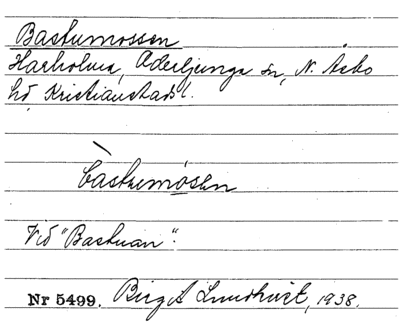 Bastumossen
Harholma, Oderljunga sn, N. Åsbo
hd Kristianstads l.
Vid "Bastuan".
Nr 5499. Birgit Lundkvist, 1938.